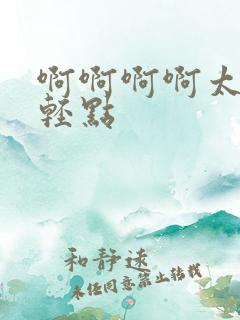 啊啊啊啊太
轻點
和静速
未经同意禁止转载